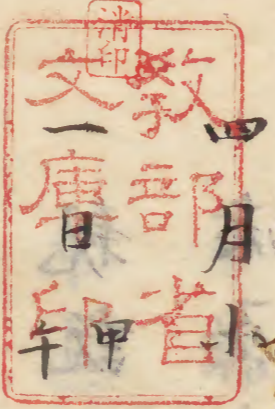 消印
教部省
文庫印
四月小
一日甲午